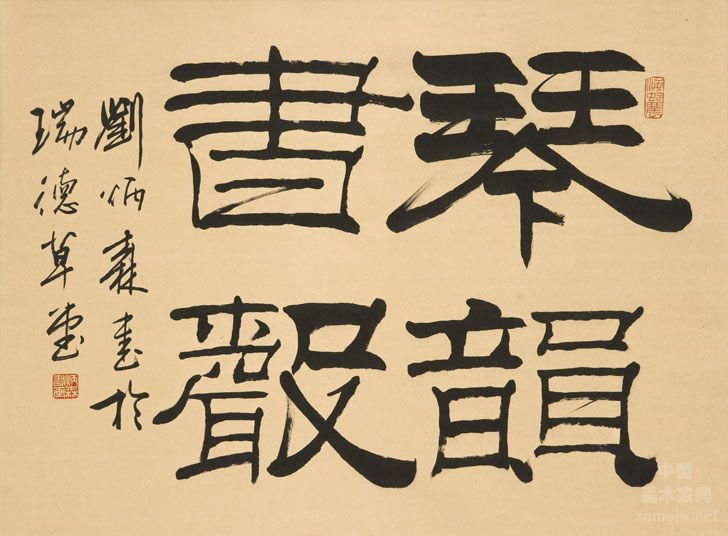 琴韻
書聲
劉炳森書於
瑞德草堂
中国
美术家网
zgmsjw.net